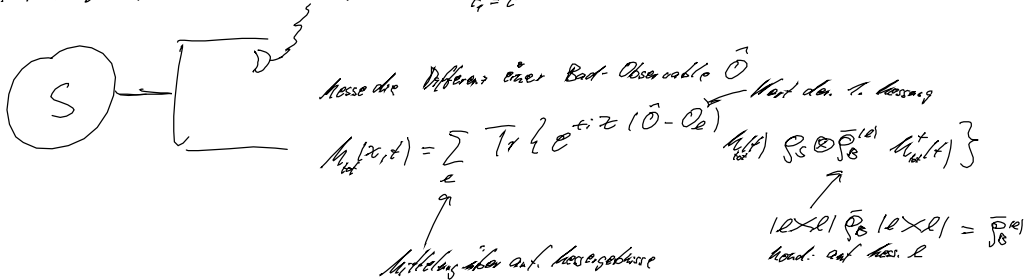 S
Messe die Differenz einer Bad-Observable Ô
Wert der 1. Messung
M_tot(χ,t) = Σ_e Tr { e^{+iχ(Ô-O_e)} U_tot(t) ρ_S ⊗ ρ̄_B^{(e)} U_tot^†(t) }
|e><e| ρ̄_B |e><e| = ρ̄_B^{(e)}
Mittelung über anf. Messergebnisse
kond. auf Mess. e